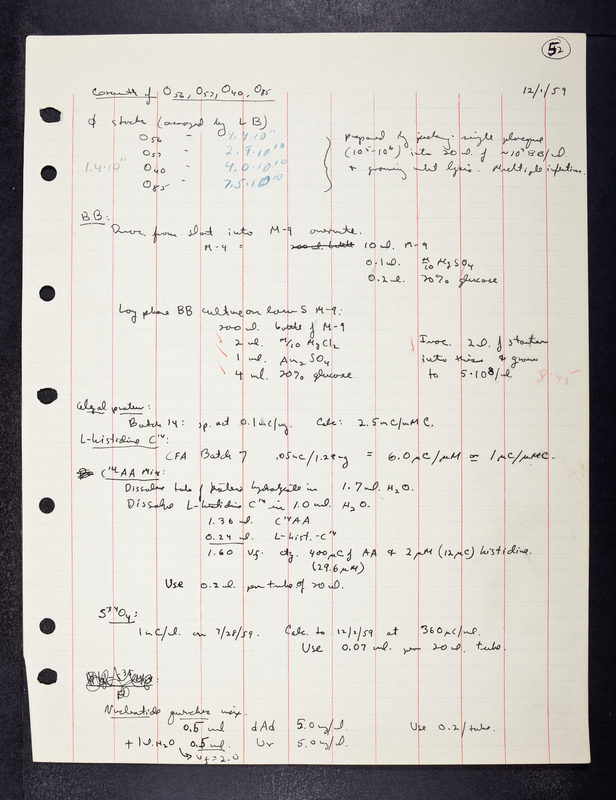 52
12/1/59
Growth of O56, O57, O40, O85
ϕ stocks (assayed by LB)
O56 " 4.9·10¹¹
O57 " 2.9·10¹⁰
1.4·10¹¹ O40 " 4.0·10¹⁰
O85 " 7.5·10¹⁰
prepared by picking single plaque
(10⁵-10⁶) into 20 ml. of ~10⁸ BB/ml
& growing until lysis. Multiple infection.
BB:
Inoc. from slant into M-9 overnite.
M-9 = 200 ml. bottle 10 ml. M-9
0.1 ml. M/10 MgSO4
0.2 ml. 20% glucose
Log phase BB culture on low S M-9:
200 ml. bottle of M-9
2 ml. M/10 MgCl2
1 ml. Am2SO4
4 ml. 20% glucose
Inoc. 2 ml. of starter
into this & grow
to 5·10⁸/ml 8:45
Algal protein:
Batch 14: sp. act 0.1 mC/mg. Calc: 2.5 mC/mM C.
L-histidine C¹⁴:
CFA Batch 7 .05mC/1.29mg = 6.0μC/μM = 1μC/μMC.
C¹⁴AA Mix:
Dissolve tube of protein hydrolyzate in 1.7 ml. H2O.
Dissolve L-histidine C¹⁴ in 1.0 ml. H2O.
1.36 ml. C¹⁴AA
0.24 ml. L-hist.-C¹⁴
1.60 400μC of AA & 2μM (12μC) histidine.
(29.6μM)
Use 0.2 ml. per tube of 20 ml.
S³⁵O4:
1mC/l. on 7/28/59. Calc. to 12/1/59 at 360μC/ml.
Use 0.07 ml. per 20 ml. tube.
Nucleotide quencher mix.
0.5 ml dAd 5.0mg/l. Use 0.2/tube.
+ 1 ml. H2O 0.5 ml. Ur 5.0mg/l.
Vf = 2.0